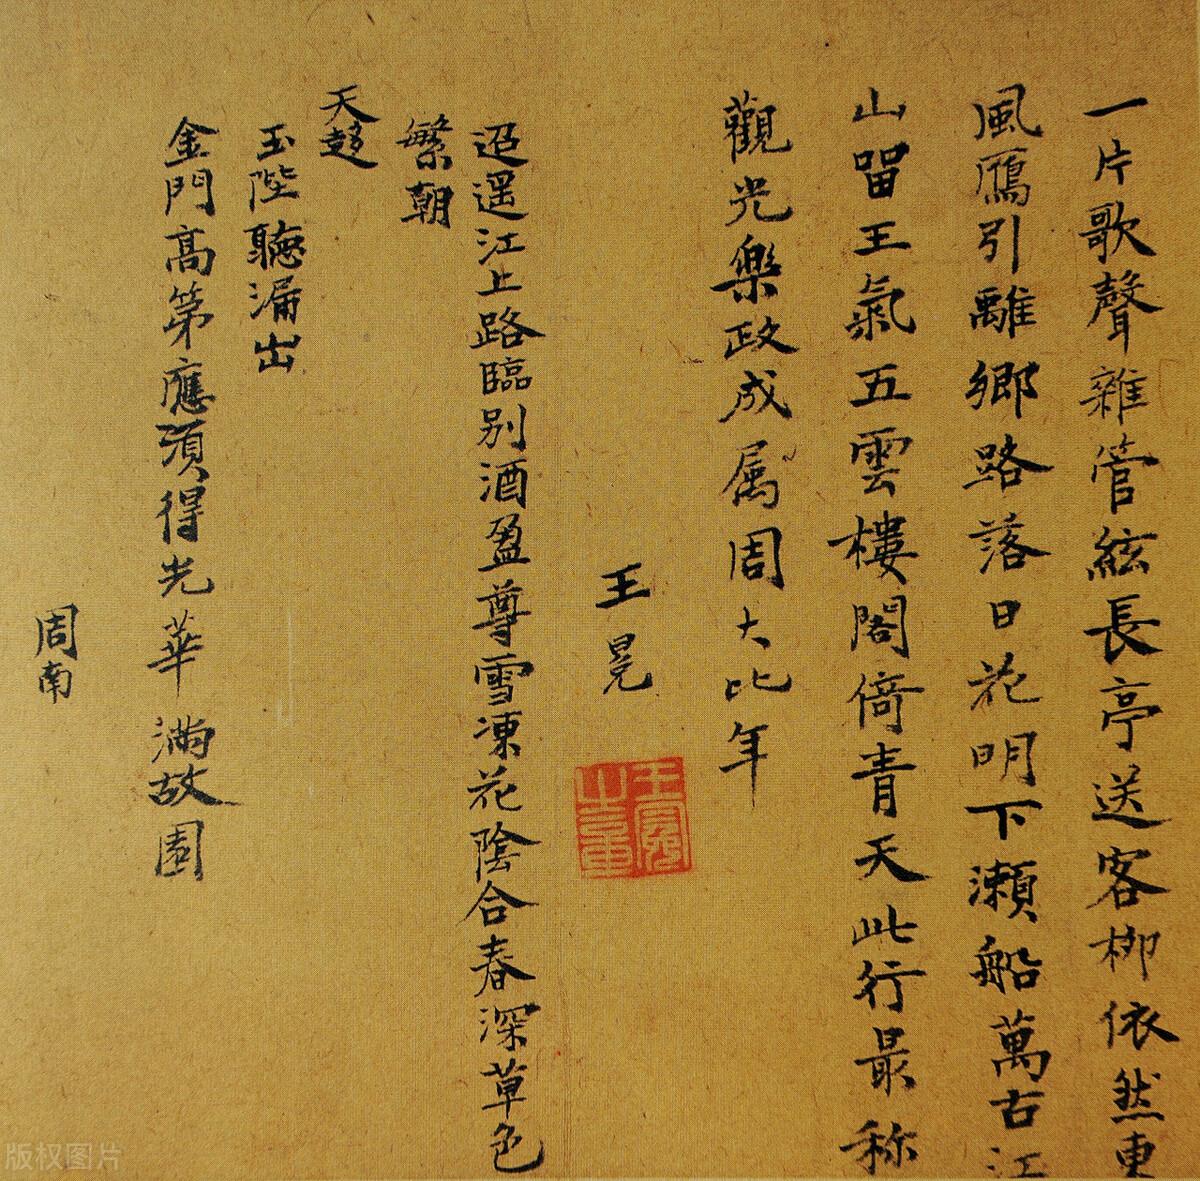 一片歌聲雜管絃長亭送客柳依然東
風鴈引離鄉路落日花明下瀬船萬古江
山留王氣五雲樓閣倚青天此行最稱
觀光樂政成属周大比年
王冕
迢遥江上路臨别酒盈尊雪凍花陰合春深草色
繁朝
天趍
玉陛聽漏出
金門高第應須得光華滿故園
周南
版权图片